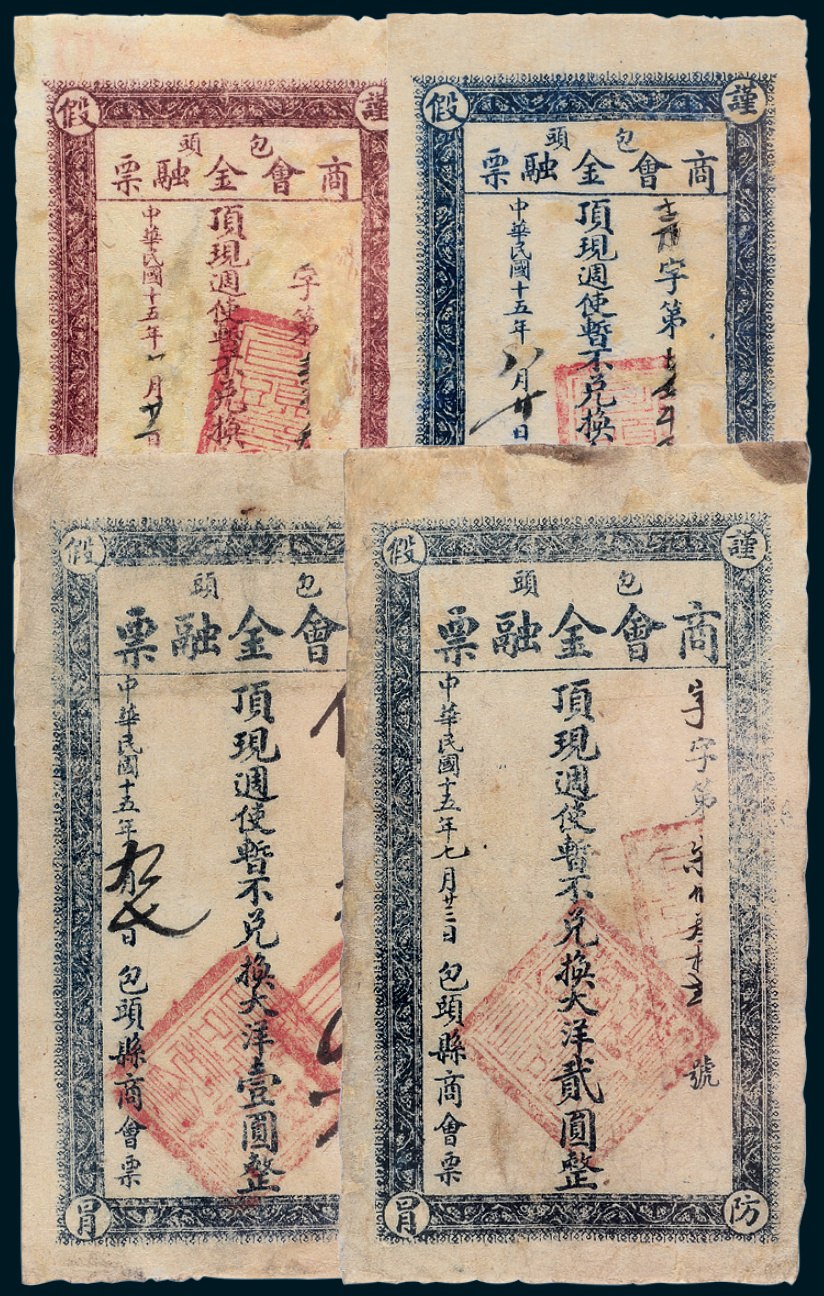 謹
假
包頭
商會金融票
字第
頂現週使暫不兑換
中華民國十五年一月廿一日
謹
假
包頭
商會金融票
字第
頂現週使暫不兑換
中華民國十五年八月廿日
假
包頭
會金融票
頂現週使暫不兑換大洋壹圓整
中華民國十五年九月七日 包頭縣商會票
冐
謹
假
包頭
商會金融票
字第 號
頂現週使暫不兑換大洋貳圓整
中華民國十五年七月廿三日 包頭縣商會票
防
冐